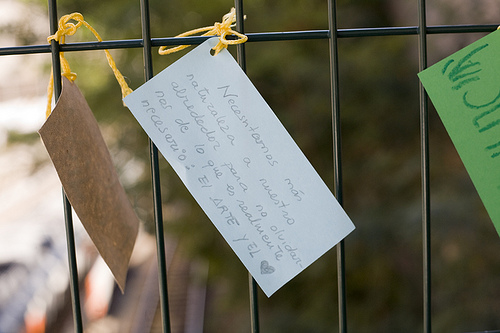 Necesitamos más
naturaleza a nuestro
alrededor para no olvidar-
nos de lo que es realmente
necesario: El ARTE Y EL ♥